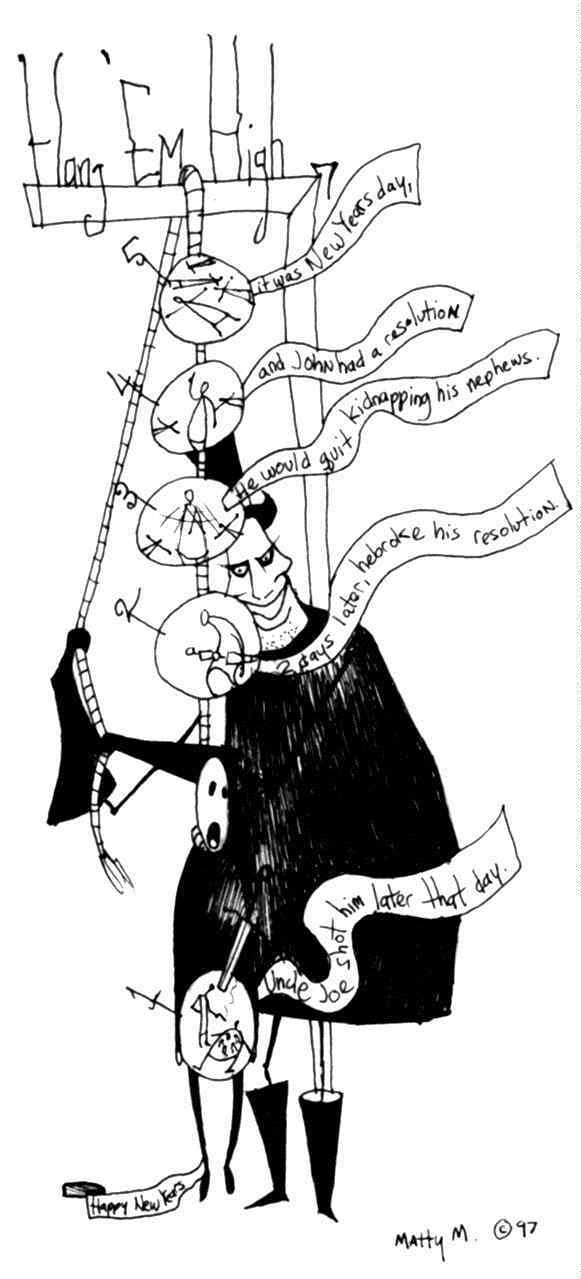 Hang 'EM High
5
it was New Years day,
4
and JoHN had a resolutioN
He would quit kidnapping his nephews.
3
2 days later, he broke his resolution.
2
Uncle Joe shot him later that day.
1
Happy New Years
Matty M. © 97